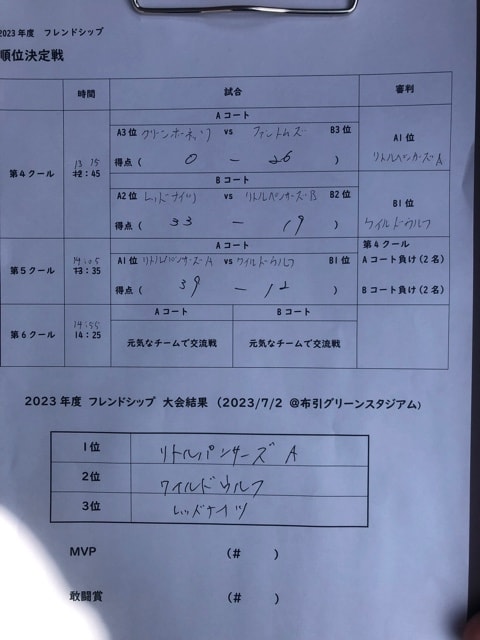 2023年度 フレンドシップ
順位決定戦
時間 試合 審判
Aコート
A3位 グリーンホーネッツ vs ファントムズ B3位
得点( 0 ー 26 )
A1位
リトルパンサーズA
第4クール
13 15
12:45
Bコート
A2位 レッドナイツ vs リトルパンサーズB B2位
得点( 33 ー 19 )
B1位
ワイルドウルフ
第5クール
14:05
13:35
Aコート
A1位 リトルパンサーズA vs ワイルドウルフ B1位
得点( 39 ー 12 )
第4クール
Aコート負け(2名)
Bコート負け(2名)
第6クール
14:55
14:25
Aコート Bコート
元気なチームで交流戦 元気なチームで交流戦
2023年度 フレンドシップ 大会結果 (2023/7/2 @布引グリーンスタジアム)
1位 リトルパンサーズ A
2位 ワイルドウルフ
3位 レッドナイツ
MVP (# )
敢闘賞 (# )